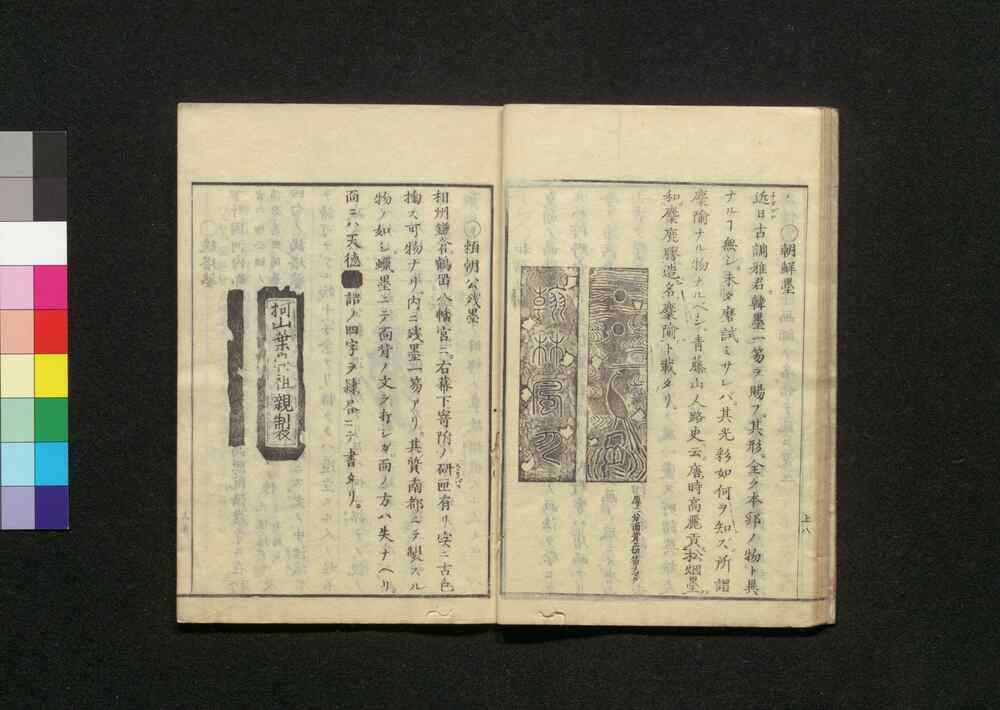 朝鮮墨
近日古調雅君韓墨一笏ヲ賜フ其形全ク本邦ノ物ト異
ナルヿ無シ未タ磨試ミサレバ其光彩如何ヲ知ス所謂
麋隃ナル物ナルベシ青藤山人路史云唐時高麗貢松烟墨
和麋鹿膠造名麋隃ト載タリ
翰林風月
上八
頼朝公残墨
相州鎌倉鶴岡八幡宮ニ右幕下寄附ノ研匣有リ実ニ古色
掬ス可物ナリ内ニ残墨一笏アリ其質南都ニテ製スル
物ノ如シ蠟墨ニテ面背ノ文ヲ打シガ面ノ方ハ失ナヘリ
面ニハ天徳 譜ノ四字ヲ隷畨ニテ書タリ
柯山葉 祖親製